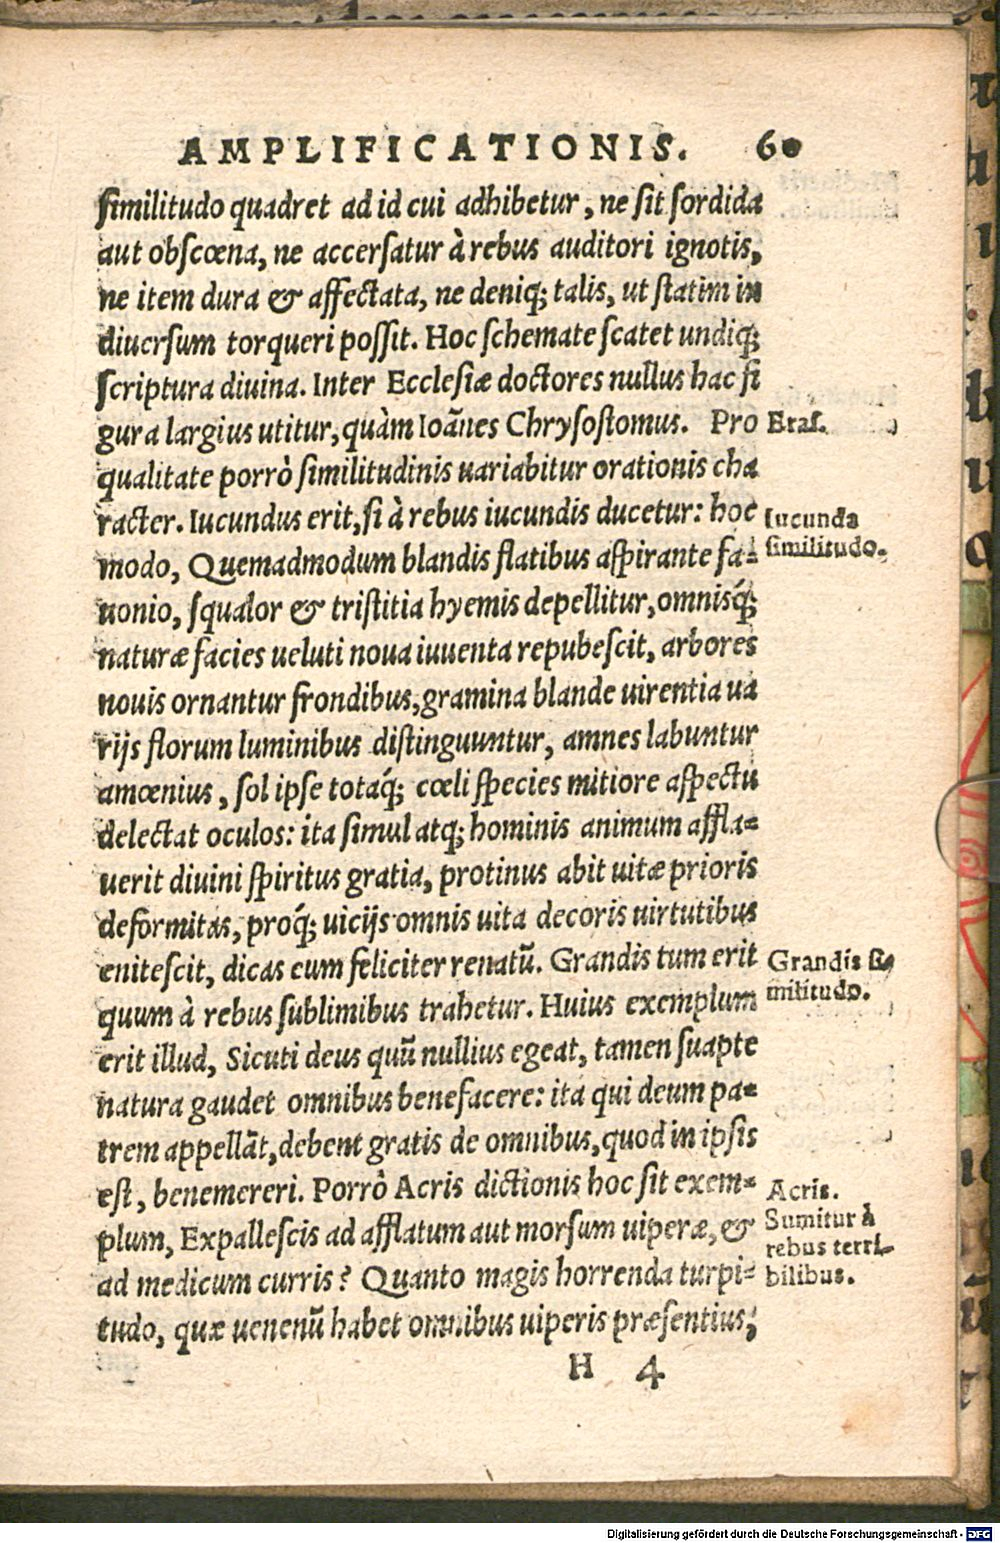 AMPLIFICATIONIS. 60
ſimilitudo quadret ad id cui adhibetur, ne ſit ſordida
aut obſcœna, ne accerſatur à rebus auditori ignotis,
ne item dura & affectata, ne deniq; talis, ut ſtatim in
diuerſum torqueri poſſit. Hoc ſchemate ſcatet undiq;
ſcriptura diuina. Inter Eccleſiæ doctores nullus hac fi
gura largius utitur, quàm Ioãnes Chryſoſtomus. Pro
Eraſ.
qualitate porrò ſimilitudinis uariabitur orationis cha
racter. Iucundus erit, ſi à rebus iucundis ducetur: hoc
Iucunda
ſimilitudo.
modo, Quemadmodum blandis flatibus aſpirante fa-
uonio, ſqualor & triſtitia hyemis depellitur, omnisq́;
naturæ facies ueluti noua iuuenta repubeſcit, arbores
nouis ornantur frondibus, gramina blande uirentia ua
rijs florum luminibus diſtinguuntur, amnes labuntur
amœnius, ſol ipſe totaq́; cœli ſpecies mitiore aſpectu
delectat oculos: ita ſimul atq; hominis animum affla-
uerit diuini ſpiritus gratia, protinus abit uitæ prioris
deformitas, proq́; uicijs omnis uita decoris uirtutibus
eniteſcit, dicas eum feliciter renatũ. Grandis tum erit
Grandis ſi-
militudo.
quum à rebus ſublimibus trahetur. Huius exemplum
erit illud, Sicuti deus quũ nullius egeat, tamen ſuapte
natura gaudet omnibus benefacere: ita qui deum pa-
trem appellãt, debent gratis de omnibus, quod in ipſis
eſt, benemereri. Porrò Acris dictionis hoc ſit exem-
Acris.
Sumitur à
rebus terri-
bilibus.
plum, Expalleſcis ad afflatum aut morſum uiperæ, &
ad medicum curris? Quanto magis horrenda turpi-
tudo, quæ uenenũ habet omnibus uiperis præſentius,
H 4
Digitalisierung gefördert durch die Deutsche Forschungsgemeinschaft - DFG